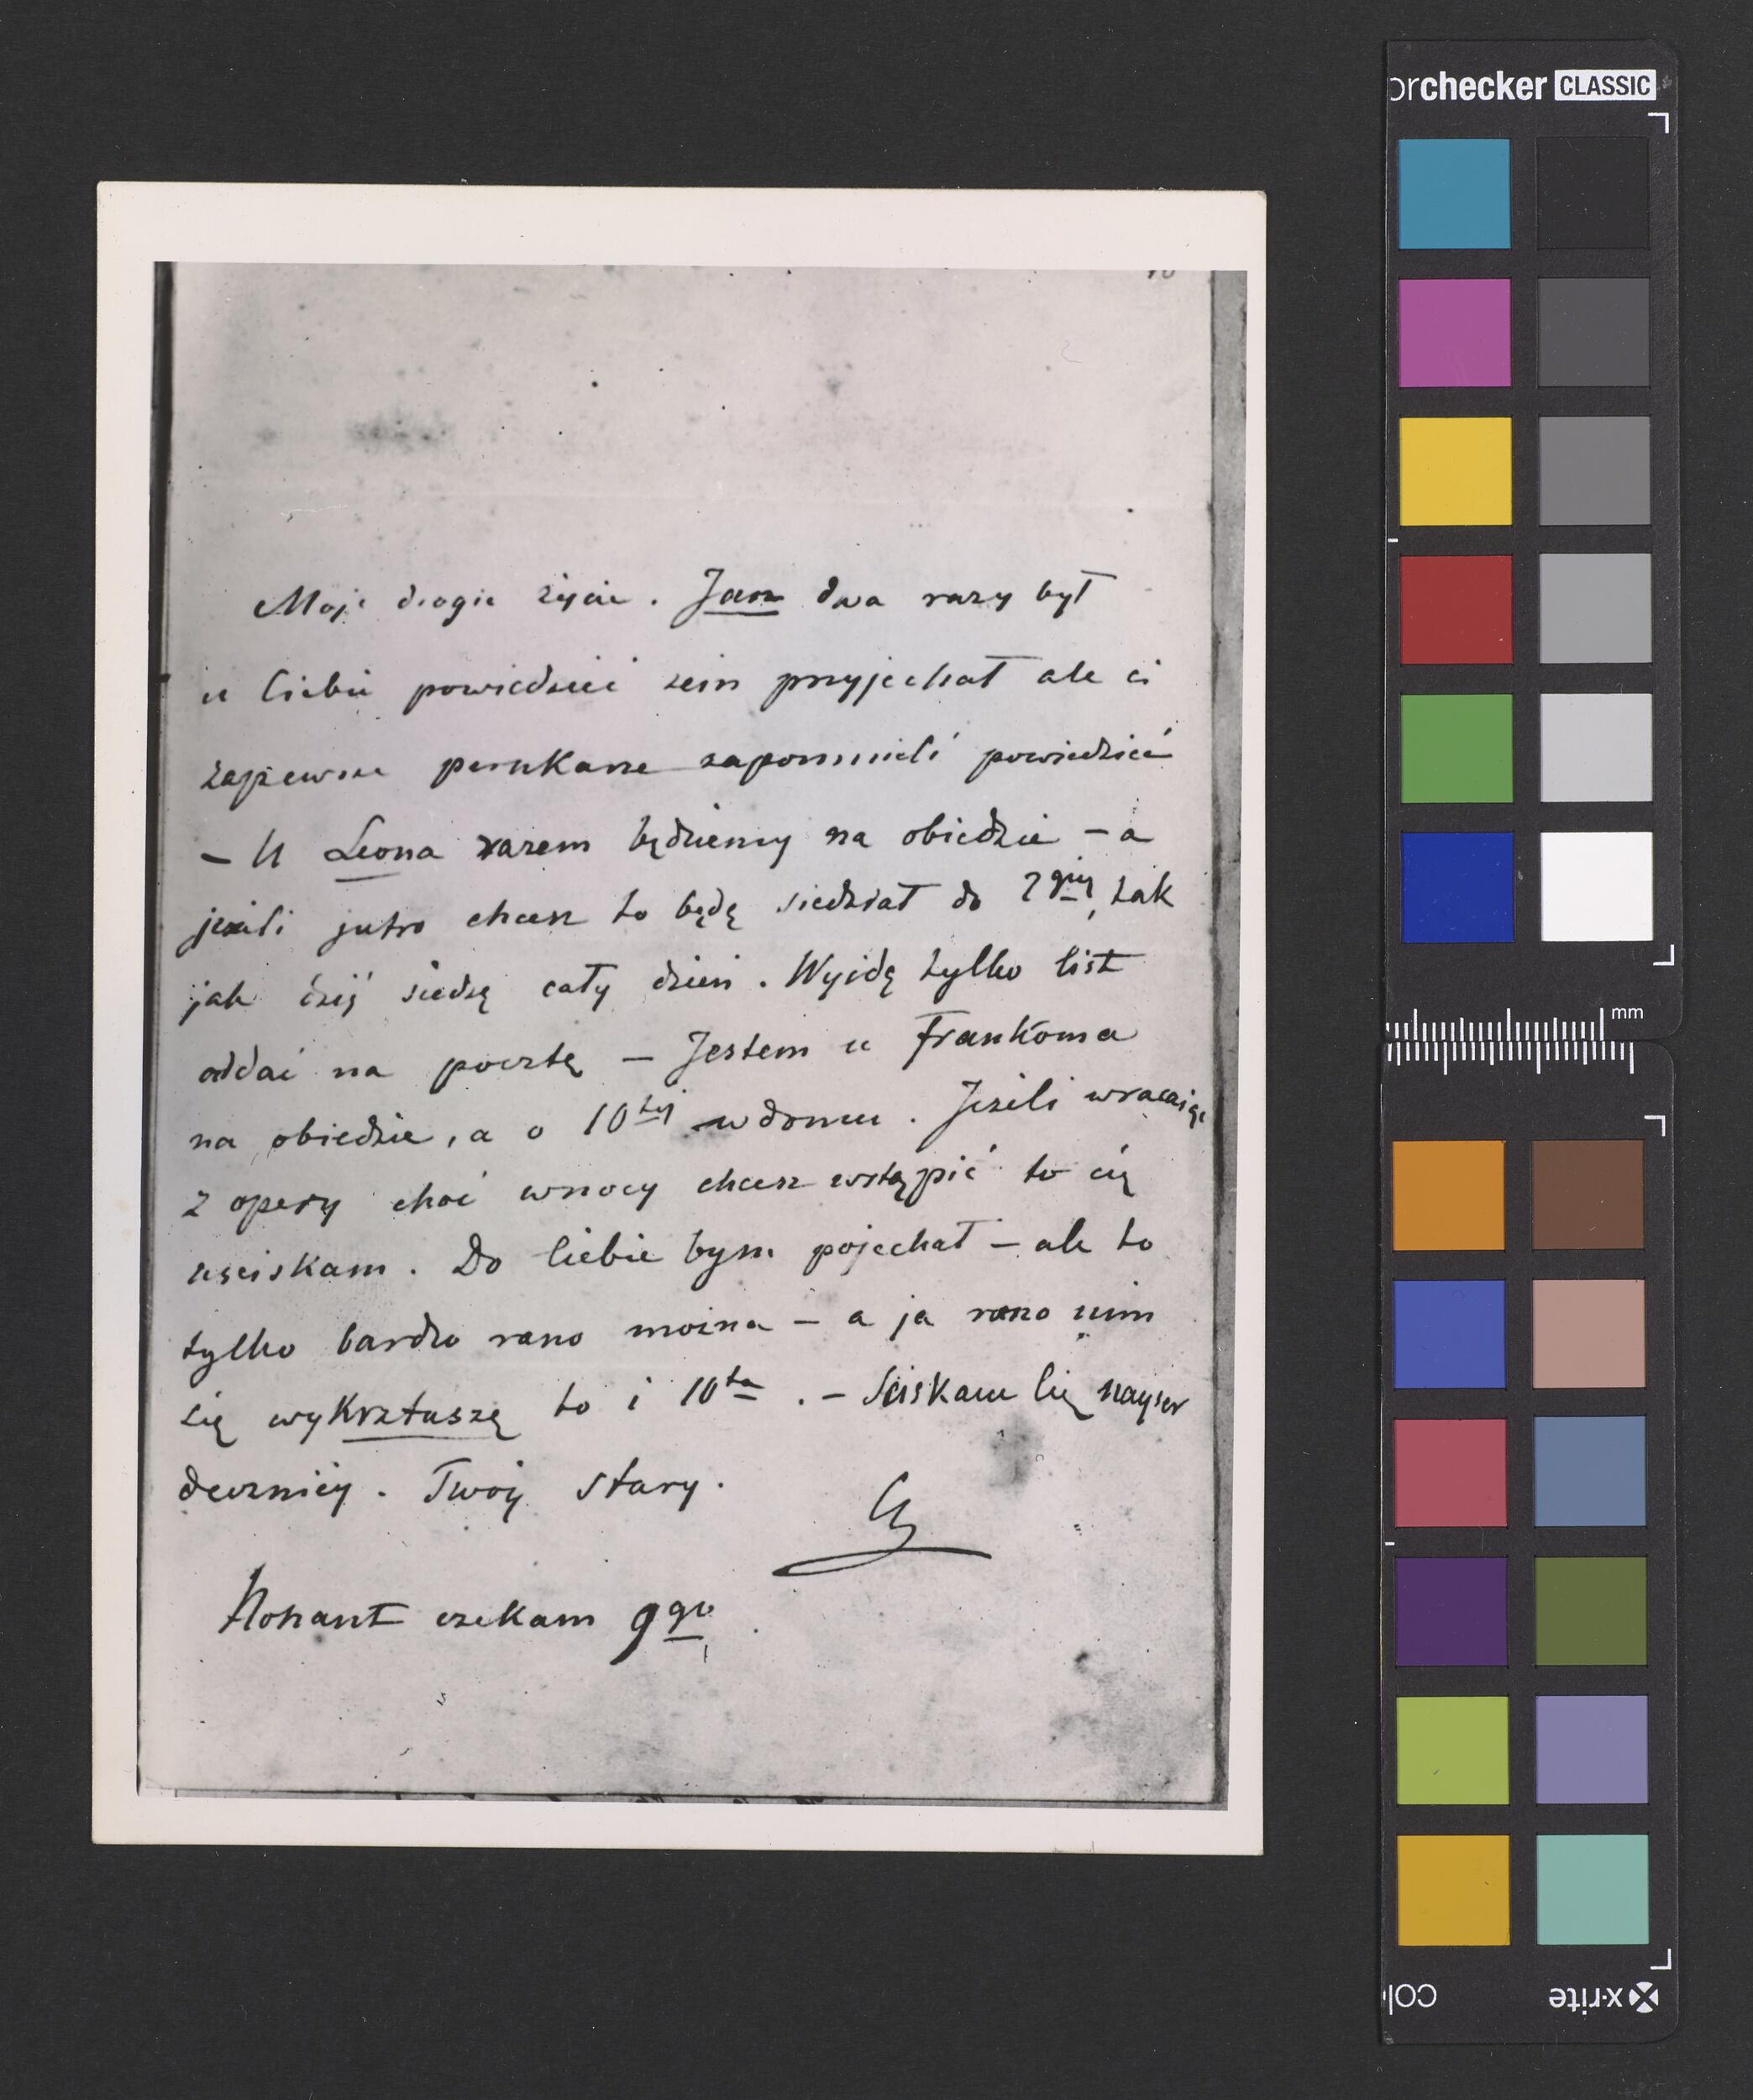 Moje drogie życie. Jan dwa razy był
u Ciebie powiedzieć żem przyjechał ale ci
zapewne perukarze zapomnieli powiedzieć
– U Leona razem będziemy na obiedzie – a
jeżeli jutro chcesz to będę siedział do 2giej, tak
jak dziś siedzę cały dzień. Wyjdę tylko list
oddać na pocztę – Jestem u Frankoma
na obiedzie, a o 10tej w domu. Jeżeli wracając
z opery choć wnocy chcesz wstąpić to cię
uściskam. Do Ciebie bym pojechał – ale to
tylko bardzo rano można – a ja rano nim
się wykrztuszę to i 10ta. – Sciskam Cię nayser
deczniey. Twoj stary.
Ch
Nohant czekam 9go.
orchecker CLASSIC
mm
x-rite
col